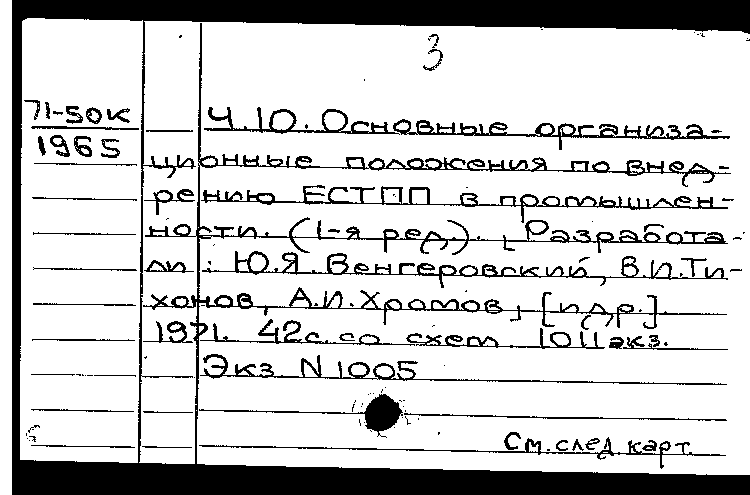 3
71-50к
1965
Ч.10. Основные организа-
ционные положения по внед-
рению ЕСТПП в промышлен-
ности. (1-я ред.). [Разработа-
ли: Ю.Я. Венгеровский, В.И.Ти-
хонов, А.И.Храмов] [и др.].
1971. 42с. со схем. 1011 экз.
Экз. N 1005
См. след. карт.